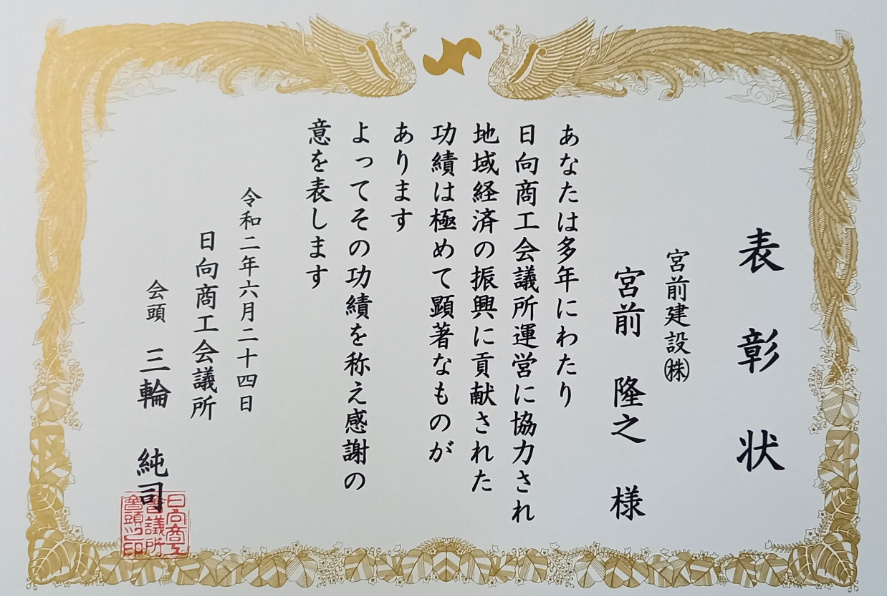 表彰状
宮前建設㈱
宮前 隆之 様
あなたは多年にわたり
日向商工会議所運営に協力され
地域経済の振興に貢献された
功績は極めて顕著なものが
あります
よってその功績を称え感謝の
意を表します
令和二年六月二十四日
日向商工会議所
会頭 三輪 純司
日向商工
会議所
会頭之印